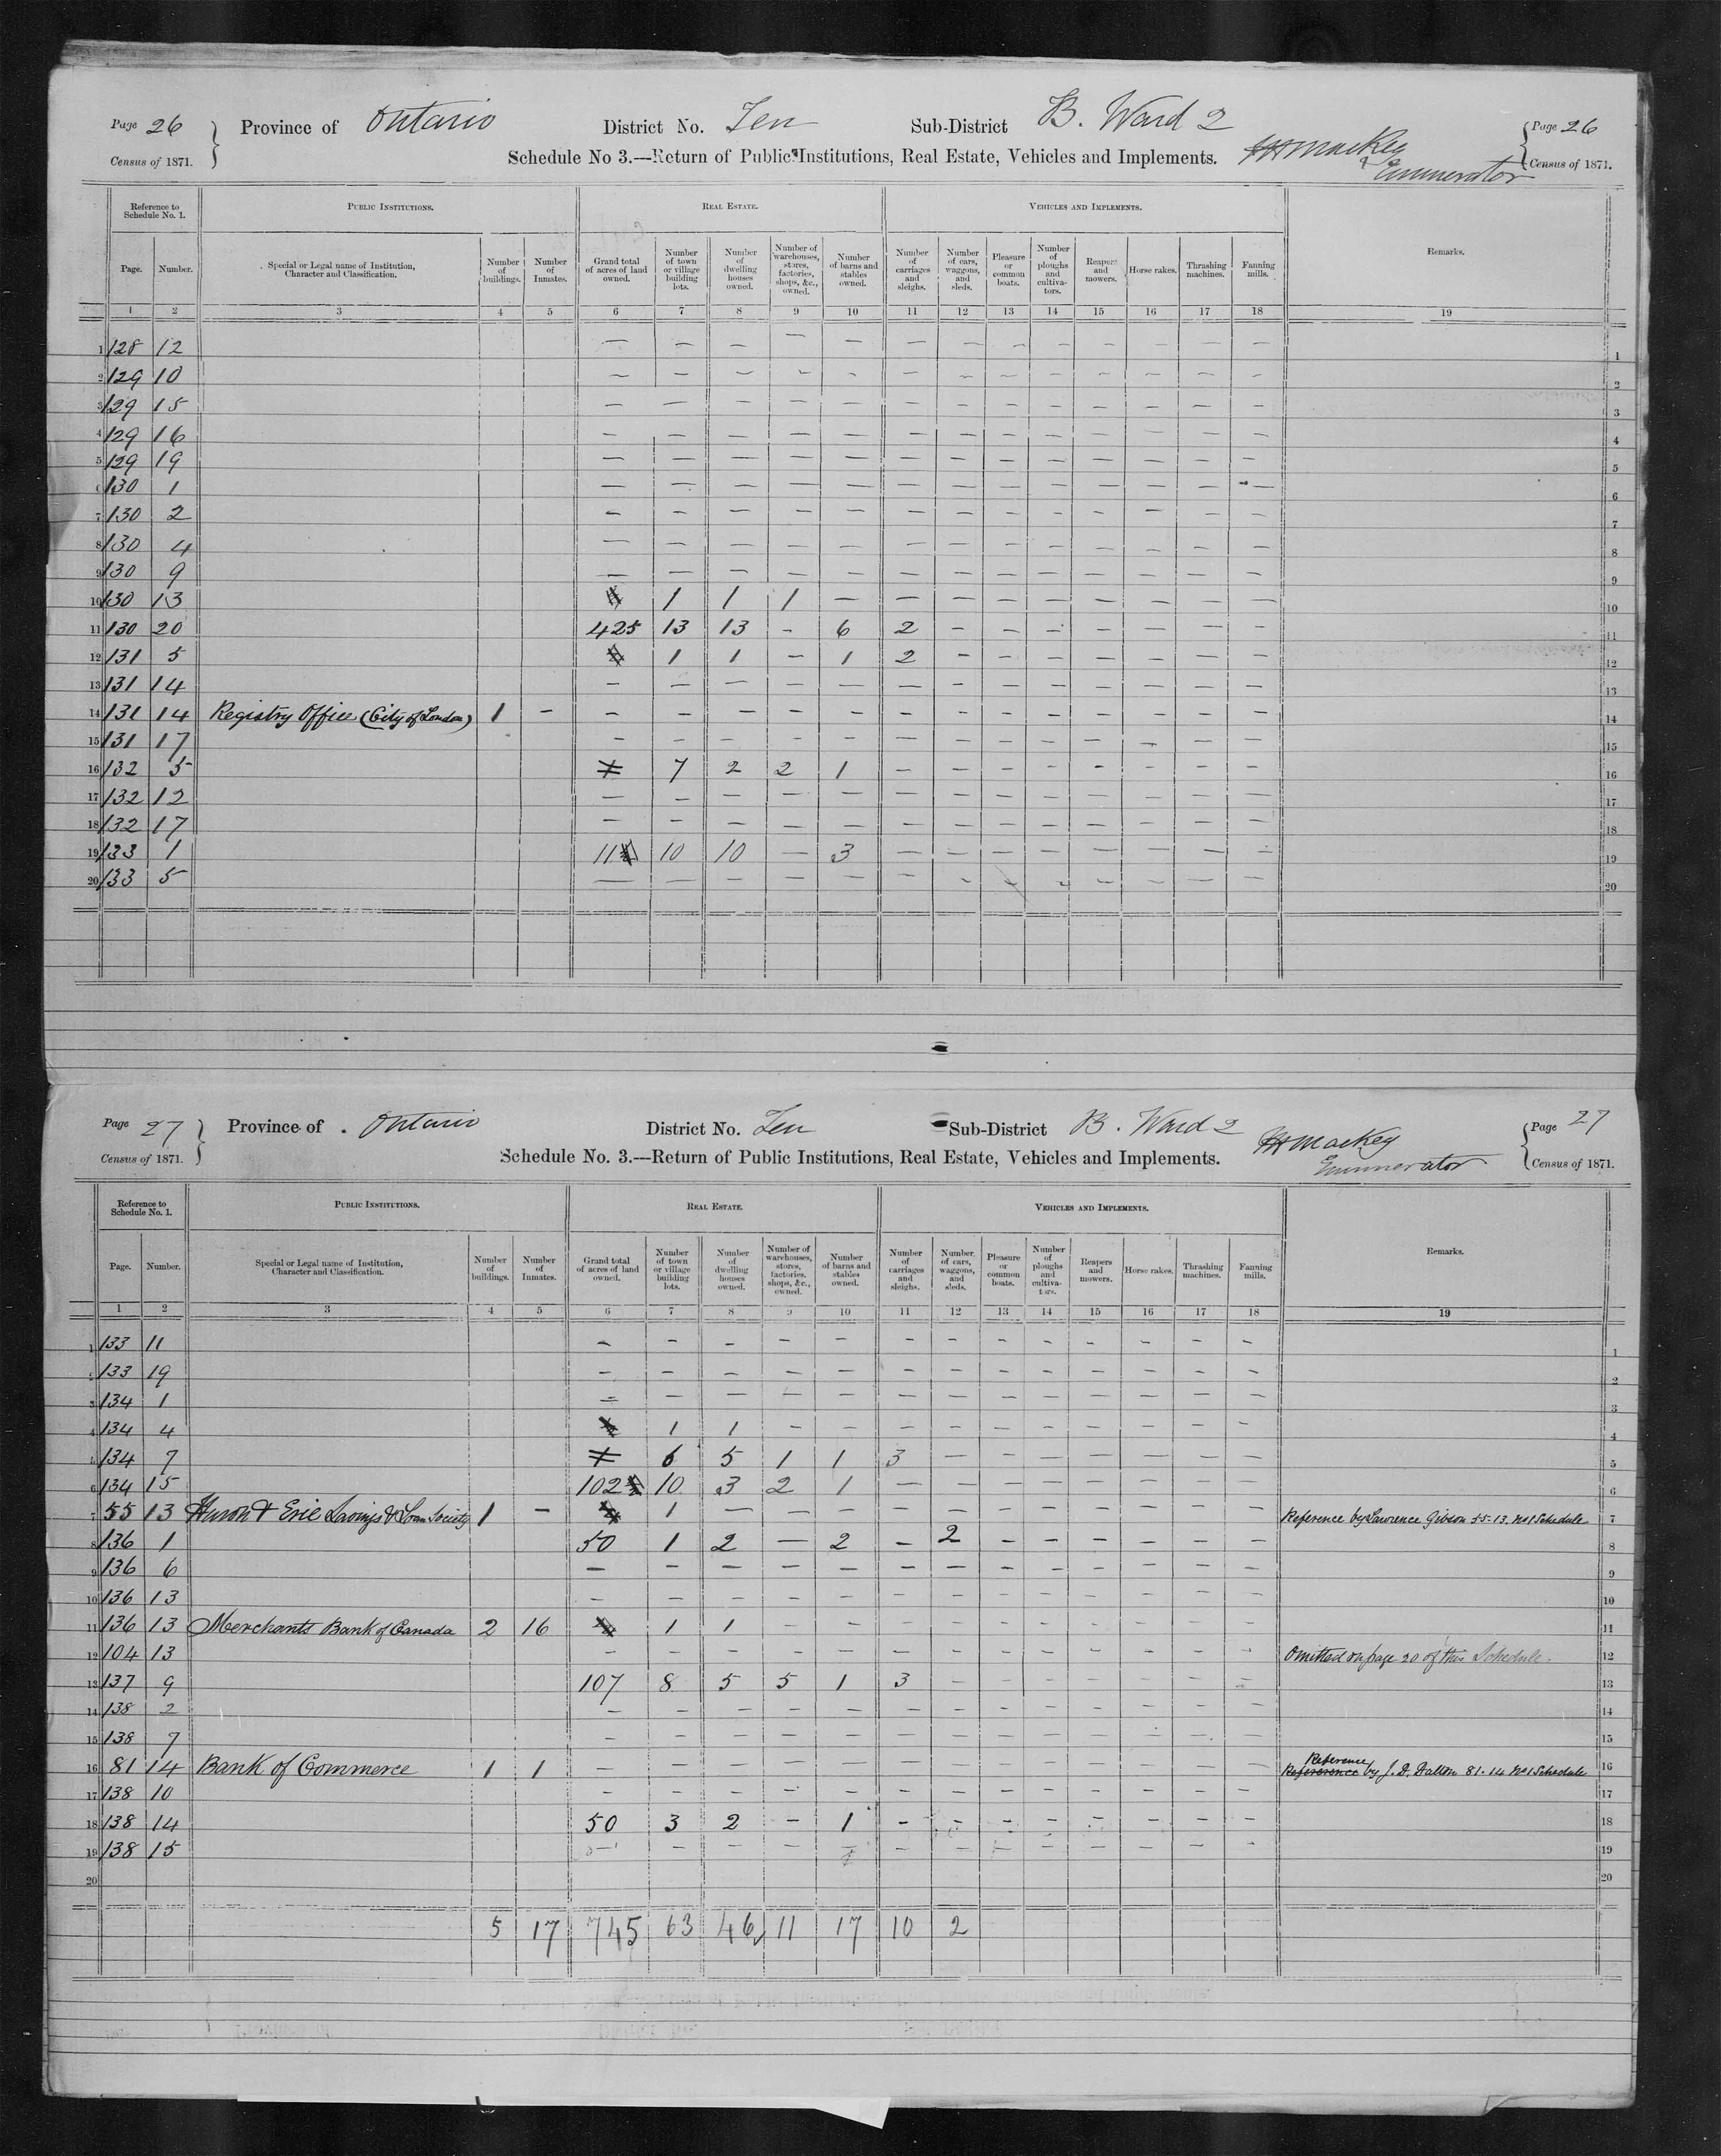 Page 26 Province of Ontario District No. Ten Sub-District B. Ward 2 Page 26
Census of 1871. Schedule No 3.—Return of Public Institutions, Real Estate, Vehicles and Implements. Mackey Enumerator Census of 1871.
Reference to Schedule No. 1. PUBLIC INSTITUTIONS. REAL ESTATE. VEHICLES AND IMPLEMENTS. Remarks.
Page. Number. Special or Legal name of Institution, Character and Classification. Number of buildings. Number of Inmates. Grand total of acres of land owned. Number of town or village building lots. Number of dwelling houses owned. Number of warehouses, stores, factories, shops, &c., owned. Number of barns and stables owned. Number of carriages and sleighs. Number of cars, waggons, and sleds. Pleasure or common boats. Number of ploughs and cultivators. Reapers and mowers. Horse rakes. Thrashing machines. Fanning mills.
1 2 3 4 5 6 7 8 9 10 11 12 13 14 15 16 17 18 19
1 128 12 — — — — — — — — — — — — — 1
2 129 10 — — — — — — — — — — — — — 2
3 129 15 — — — — — — — — — — — — — 3
4 129 16 — — — — — — — — — — — — — 4
5 129 19 — — — — — — — — — — — — — 5
6 130 1 — — — — — — — — — — — — — 6
7 130 2 — — — — — — — — — — — — — 7
8 130 4 — — — — — — — — — — — — — 8
9 130 9 — — — — — — — — — — — — — 9
10 130 13 1 1 1 — — — — — — — — — 10
11 130 20 425 13 13 - 6 2 — — — — — — — 11
12 131 5 1 1 — 1 2 — — — — — — — 12
13 131 14 — — — — — — — — — — — — — 13
14 131 14 Registry Office (City of London) 1 — — — — — — — — — — — — — — 14
15 131 17 — — — — — — — — — — — — — 15
16 132 5 7 2 2 1 — — — — — — — — 16
17 132 12 — — — — — — — — — — — — — 17
18 132 17 — — — — — — — — — — — — — 18
19 133 1 11 10 10 — 3 — — — — — — — — 19
20 133 5 — — — — — — — — — — — — — 20
Page 27 Province of Ontario District No. Ten Sub-District B. Ward 2 Page 27
Census of 1871. Schedule No. 3.—Return of Public Institutions, Real Estate, Vehicles and Implements. Mackey Enumerator Census of 1871.
Reference to Schedule No. 1. PUBLIC INSTITUTIONS. REAL ESTATE. VEHICLES AND IMPLEMENTS. Remarks.
Page. Number. Special or Legal name of Institution, Character and Classification. Number of buildings. Number of Inmates. Grand total of acres of land owned. Number of town or village building lots. Number of dwelling houses owned. Number of warehouses, stores, factories, shops, &c., owned. Number of barns and stables owned. Number of carriages and sleighs. Number of cars, waggons, and sleds. Pleasure or common boats. Number of ploughs and cultivators. Reapers and mowers. Horse rakes. Thrashing machines. Fanning mills.
1 2 3 4 5 6 7 8 9 10 11 12 13 14 15 16 17 18 19
1 133 11 — — — — — — — — — — — — — 1
2 133 19 — — — — — — — — — — — — — 2
3 134 1 — — — — — — — — — — — — — 3
4 134 4 1 1 — — — — — — — — — — 4
5 134 7 6 5 1 1 3 — — — — — — — 5
6 134 15 102 10 3 2 1 — — — — — — — — 6
7 55 13 Huron & Erie Savings & Loan Society 1 — 1 — — — — — — — — — — — Reference by Lawrence Gibson 55-13 No 1 Schedule 7
8 136 1 50 1 2 — 2 — 2 — — — — — — 8
9 136 6 — — — — — — — — — — — — — 9
10 136 13 — — — — — — — — — — — — — 10
11 136 13 Merchants Bank of Canada 2 16 1 1 — — — — — — — — — — 11
12 104 13 — — — — — — — — — — — — — Omitted on page 20 of this Schedule. 12
13 137 9 107 8 5 5 1 3 — — — — — — — 13
14 138 2 — — — — — — — — — — — — — 14
15 138 7 — — — — — — — — — — — — — 15
16 81 14 Bank of Commerce 1 1 — — — — — — — — — — — — — Reference by J. D. Dalton 81-14 No 1 Schedule 16
17 138 10 — — — — — — — — — — — — — 17
18 138 14 50 3 2 — 1 — — — — — — — — 18
19 138 15 — — — — — — — — — — — — 19
20 20
5 17 745 63 46 11 17 10 2